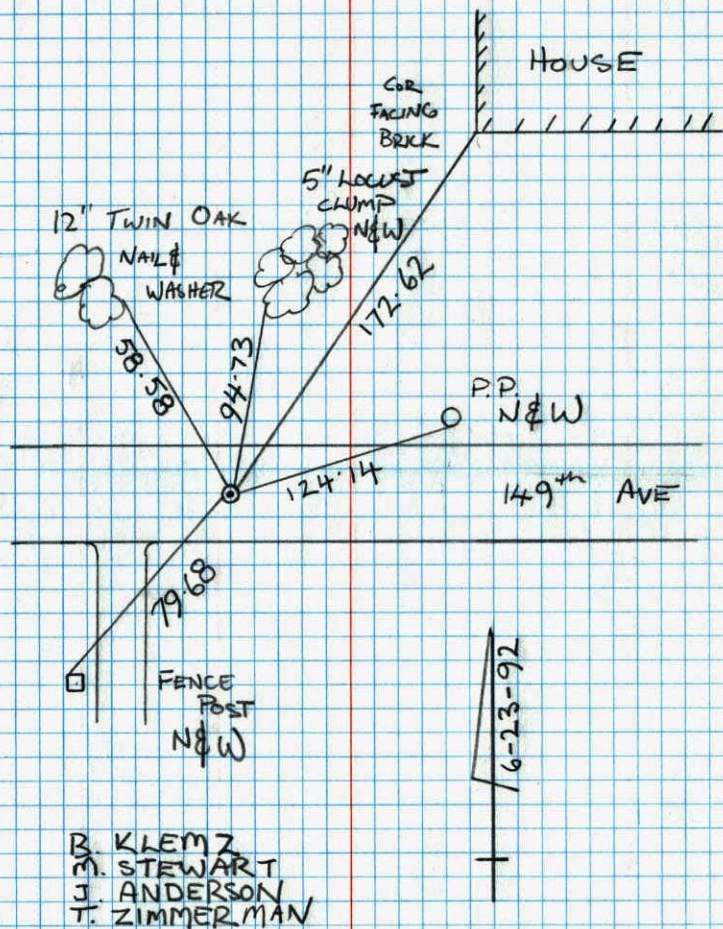 HOUSE
COR
FACING
BRICK
5" LOCUST
CLUMP
N&W
12" TWIN OAK
NAIL &
WASHER
172.62
58.58
94.73
P.P.
N&W
124.14
149th AVE
79.68
FENCE
POST
N&W
6-23-92
B. KLEMZ
M. STEWART
J. ANDERSON
T. ZIMMERMAN